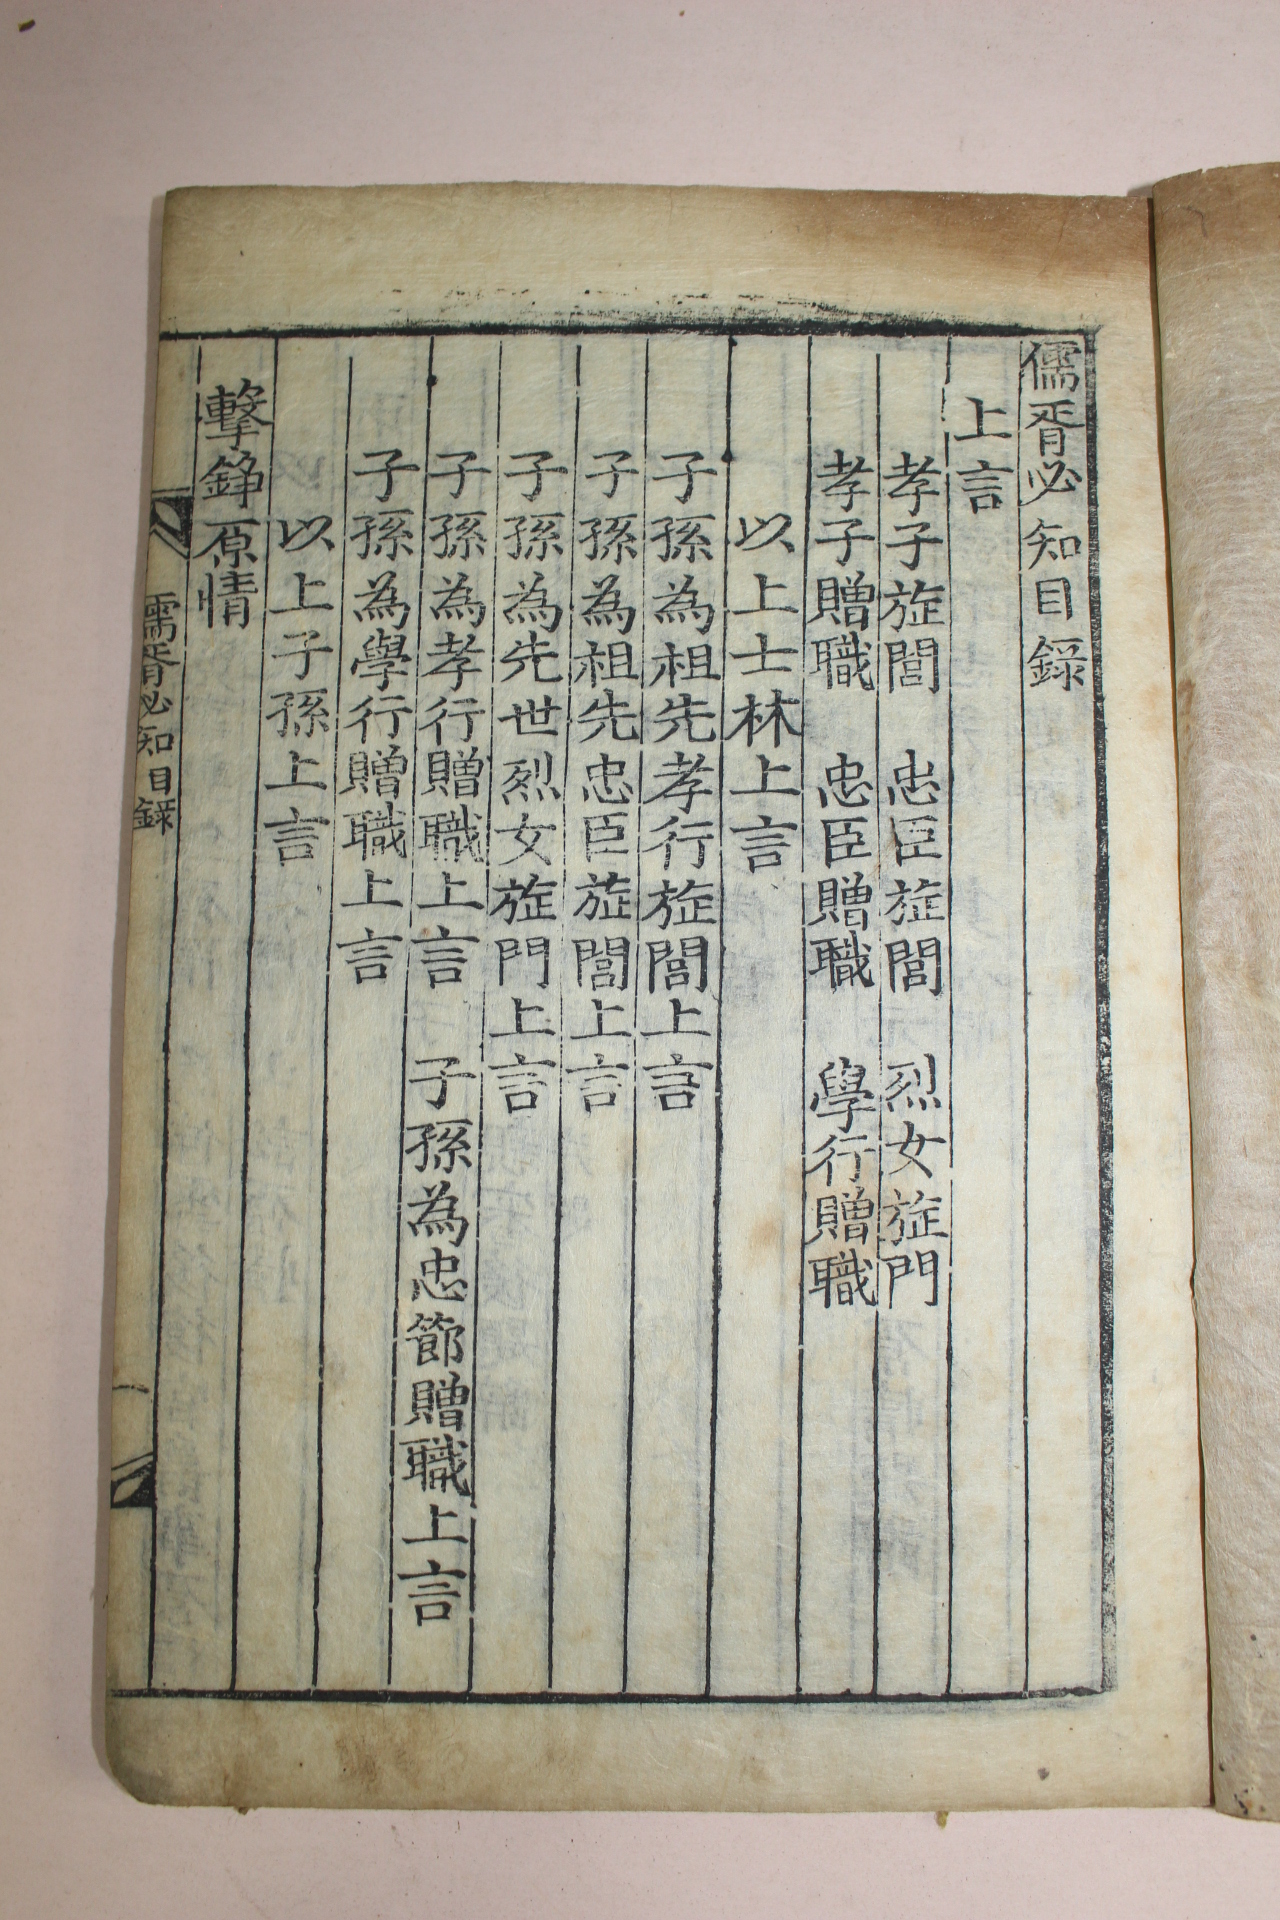 儒胥必知目録
上言
孝子旌閭 忠臣旌閭 烈女旌門
孝子贈職 忠臣贈職 學行贈職
以上士林上言
子孫為祖先孝行旌閭上言
子孫為祖先忠臣旌閭上言
子孫為先世烈女旌門上言
子孫為孝行贈職上言 子孫為忠節贈職上言
子孫為學行贈職上言
以上子孫上言
擊錚原情
儒胥必知目録